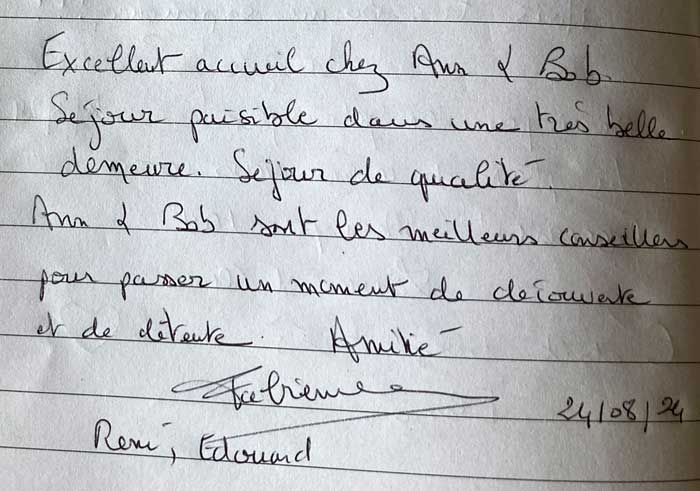 Excellent accueil chez Ann & Bob.
Séjour paisible dans une très belle
demeure. Séjour de qualité.
Ann & Bob sont les meilleurs conseillers
pour passer un moment de découverte
et de détente. Amitié
Fabienne
24/08/24
Remi, Edouard